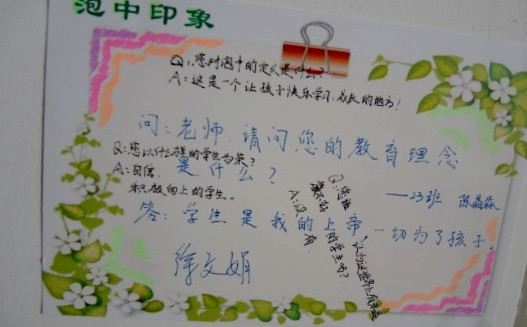 泡中印象
Q:您对泡中的定义是什么?
A:这是一个让孩子快乐学习,成长的地方!
问:老师,请问您的教育理念
是什么?
——23班 陈晶淼
Q:您以什么样的学生为荣?
A:自信、
积极向上的学生。
答:学生是我的上帝,一切为了孩子。
徐文娟
A:没有